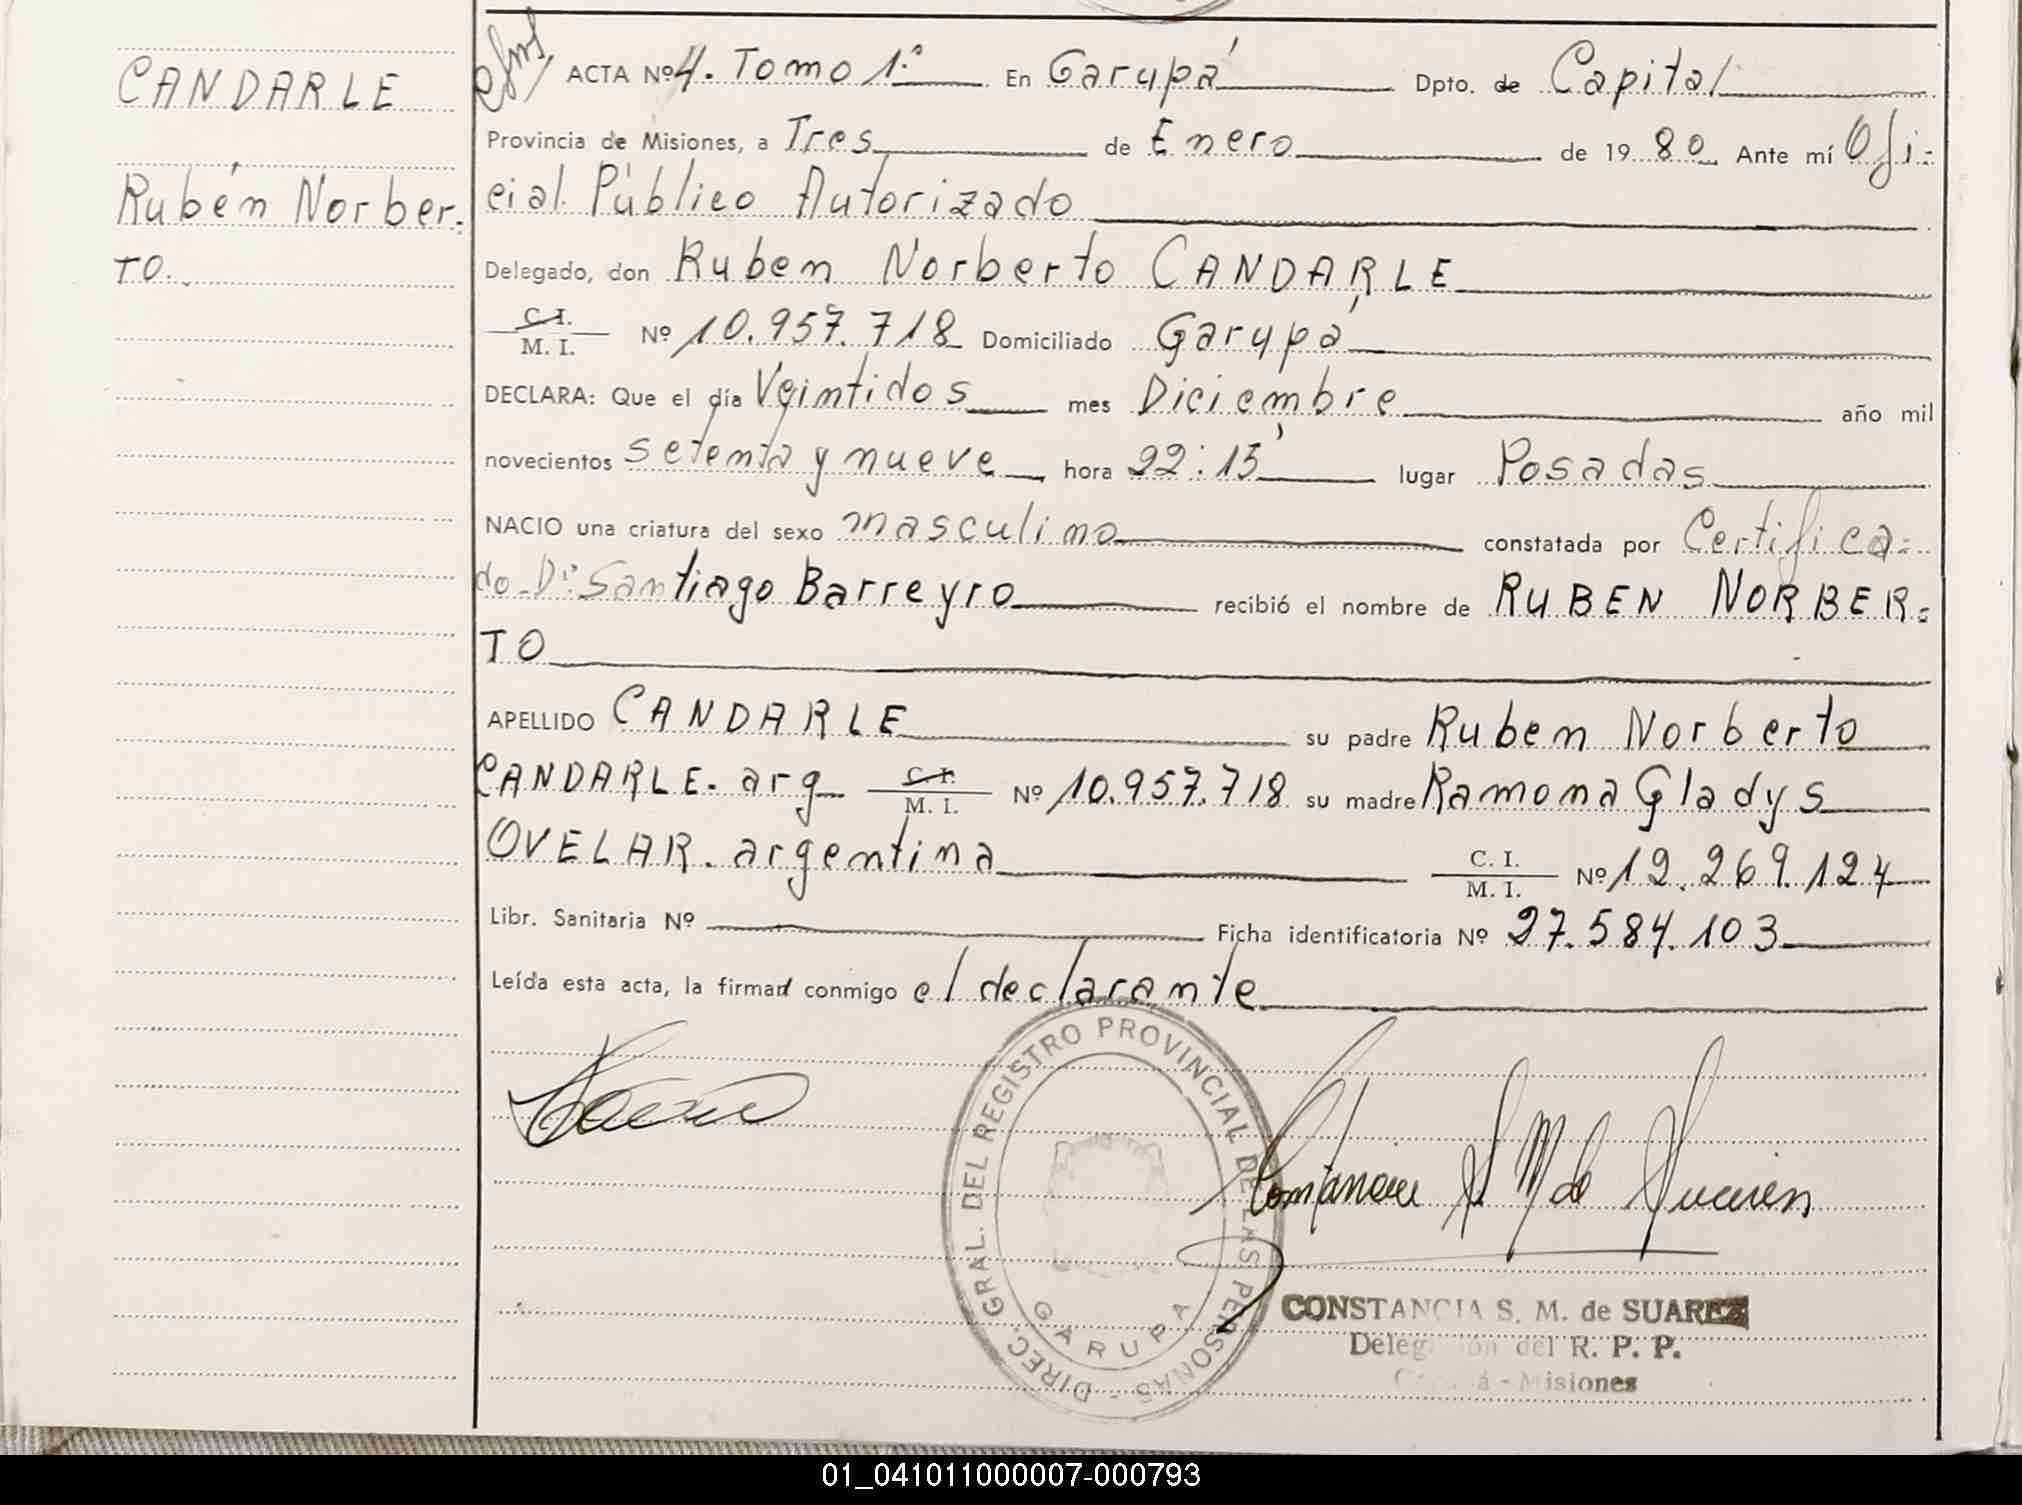 CANDARLE
Rubén Norber-
TO.
ACTA Nº 4. Tomo 1º En Garupá Dpto. de Capital
Provincia de Misiones, a Tres de Enero de 1980 Ante mí Ofi-
cial Público Autorizado
Delegado, don Ruben Norberto CANDARLE
C. I.
M. I. Nº 10.957.718 Domiciliado Garupá
DECLARA: Que el día Veintidos mes Diciembre año mil
novecientos setenta y nueve hora 22:15 lugar Posadas
NACIO una criatura del sexo masculino constatada por Certifica-
do Dr. Santiago Barreyro recibió el nombre de RUBEN NORBER-
TO
APELLIDO CANDARLE su padre Ruben Norberto
CANDARLE. arg C. I.
M. I. Nº 10.957.718 su madre Ramona Gladys
OVELAR. argentina C. I.
M. I. Nº 12.269.124
Libr. Sanitaria Nº Ficha identificatoria Nº 27.584.103
Leída esta acta, la firman conmigo el declarante
DIREC. GRAL. DEL REGISTRO PROVINCIAL DE LAS PERSONAS -
GARUPA
CONSTANCIA S. M. de SUAREZ
del R. P. P.
Misiones
01_041011000007-000793